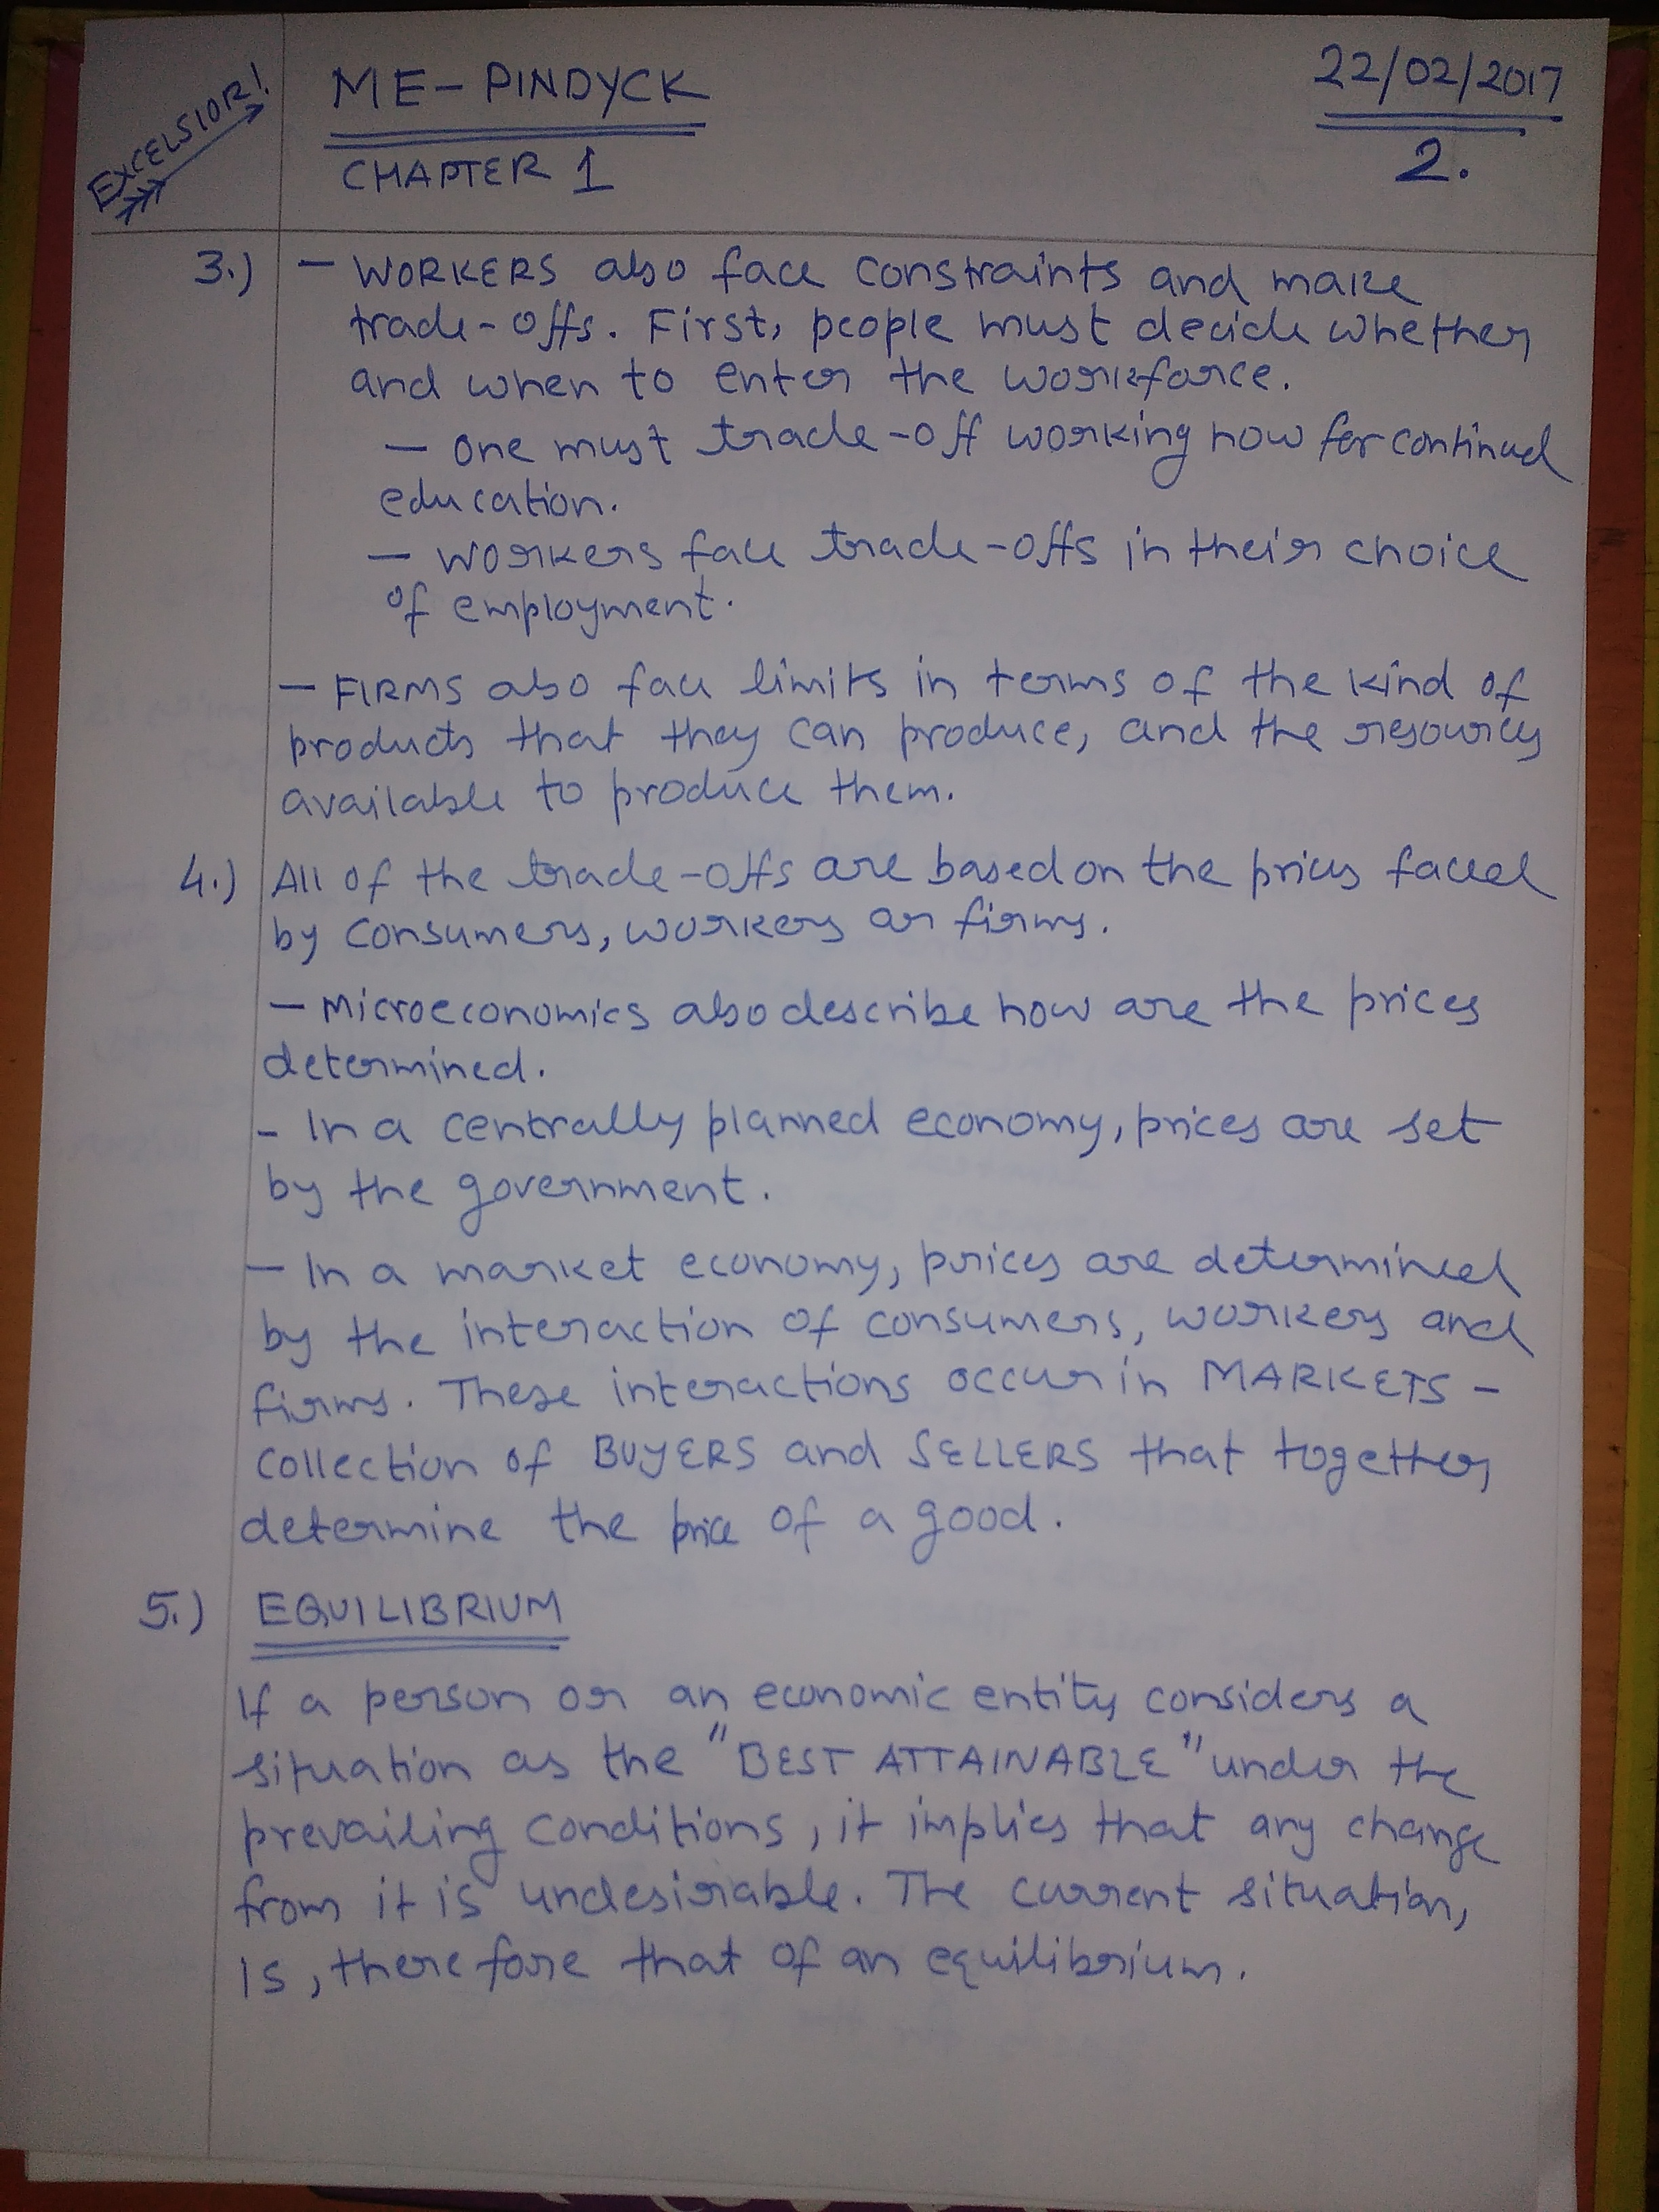 EXCELSIOR!
ME - PINDYCK
22/02/2017
CHAPTER 1
2.
3.) - WORKERS also face constraints and make
trade-offs. First, people must decide whether
and when to enter the workforce.
- One must trade-off working now for continued
education.
- Workers face trade-offs in their choice
of employment.
- FIRMS also face limits in terms of the kind of
products that they can produce, and the resources
available to produce them.
4.) All of the trade-offs are based on the prices faced
by consumers, workers or firms.
- Microeconomics also describe how are the prices
determined.
- In a centrally planned economy, prices are set
by the government.
- In a market economy, prices are determined
by the interaction of consumers, workers and
firms. These interactions occur in MARKETS -
collection of BUYERS and SELLERS that together,
determine the price of a good.
5.) EQUILIBRIUM
If a person or an economic entity considers a
situation as the "BEST ATTAINABLE" under the
prevailing conditions, it implies that any change
from it is undesirable. The current situation,
is, therefore that of an equilibrium.